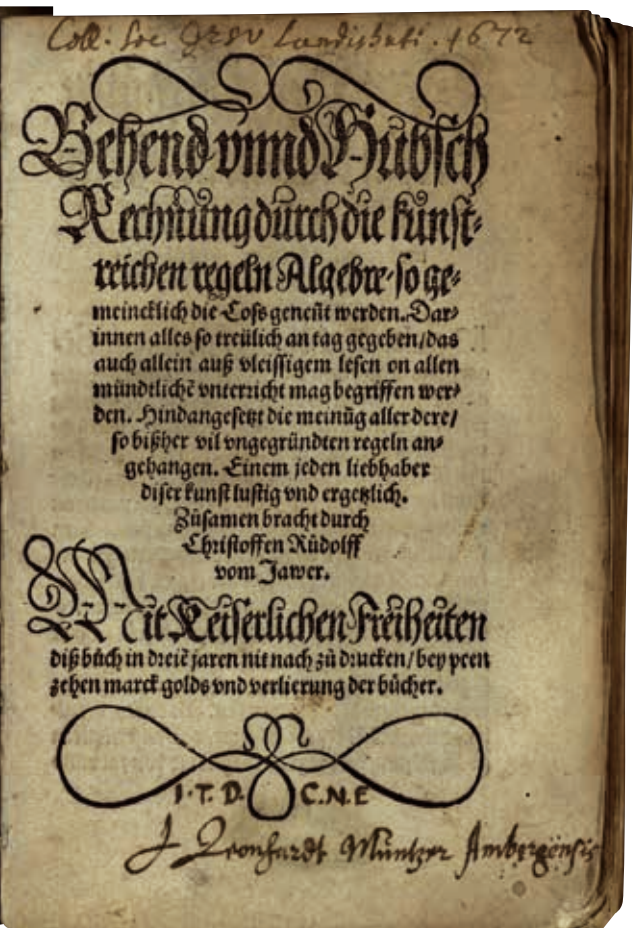 Coll. Soc Jesu Landishuti. 1672
Behend vnnd Hübsch
Rechnung durch die kunst-
reichen regeln Algebre/ so ge-
meincklich die Coss geneñt werden. Dar-
innen alles so treülich an tag gegeben/ das
auch allein auß vleissigem lesen on allen
mündtlichẽ vnterricht mag begriffen wer-
den. Hindangesetzt die meinũg aller dere/
so bißher vil vngegründten regeln an-
gehangen. Einem jeden liebhaber
diser kunst lustig vnd ergetzlich.
Zůsamen bracht durch
Christoffen Růdolff
vom Jawer.
Mit Keiserlichen Freiheiten
diß bůch in dreiẽ jaren nit nach zů drucken/ bey peen
zehen marck golds vnd verlierung der bücher.
I.T.D. C.N.E
Leonhardt Müntzer Ambergensis